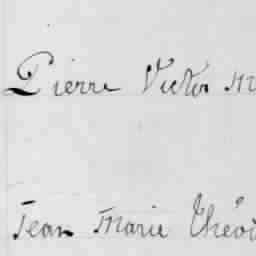 Pierre Victor M
Jean Marie Théo